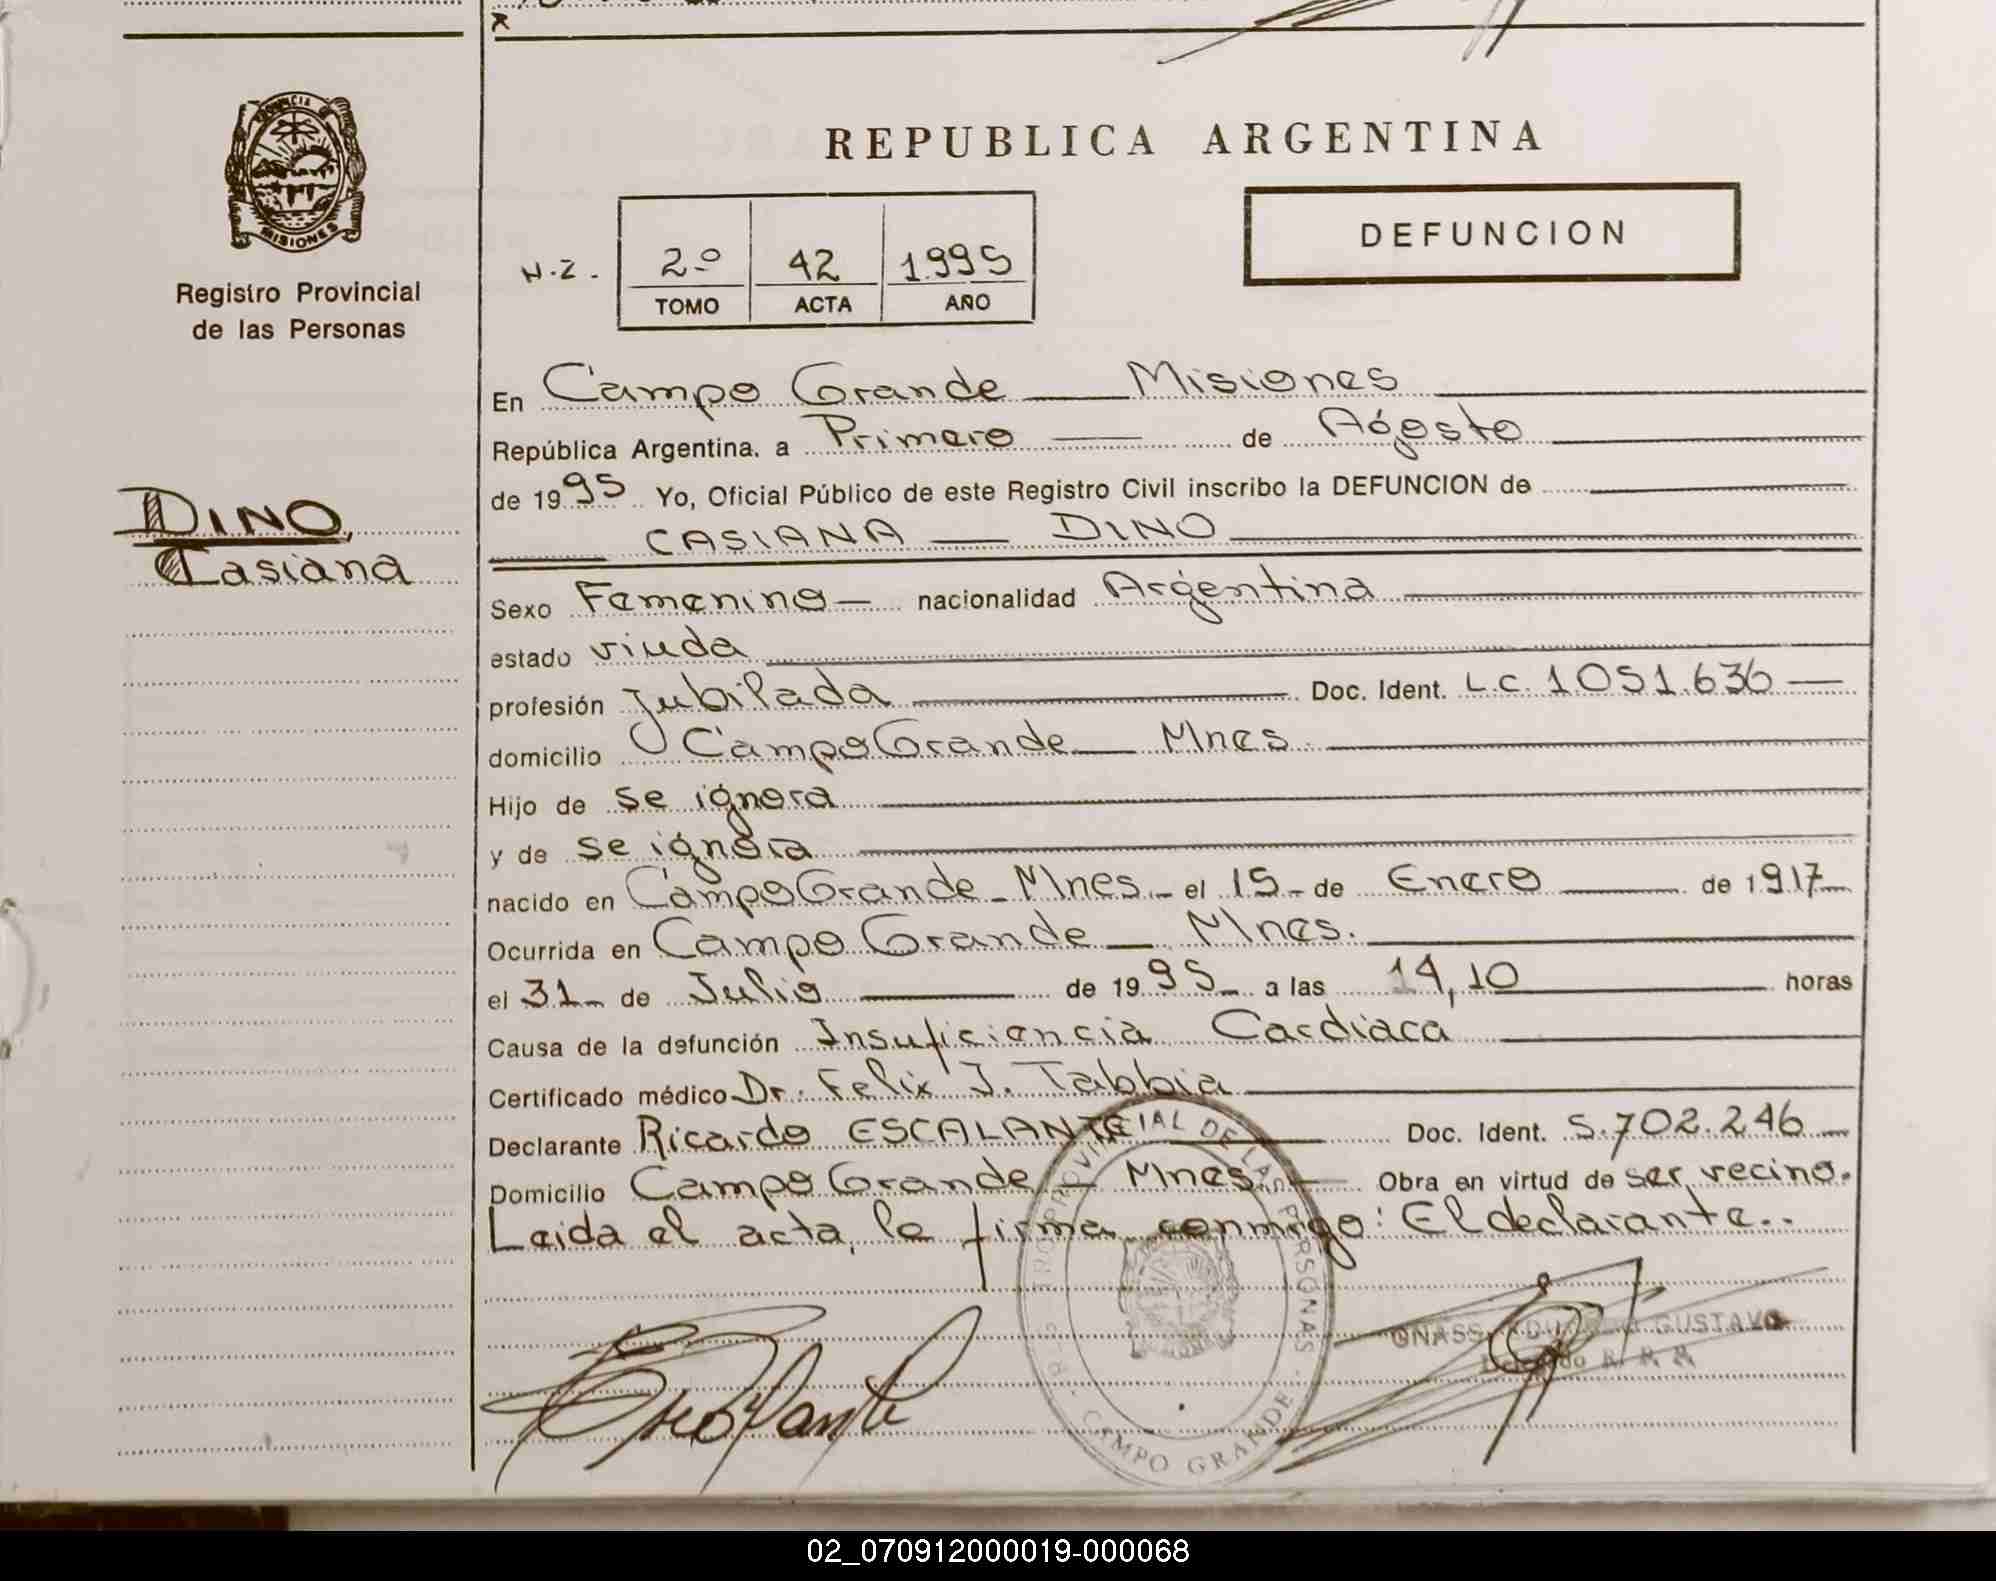 PROVINCIA DE
MISIONES
Registro Provincial
de las Personas
DINO,
Casiana
REPUBLICA ARGENTINA
DEFUNCION
N.Z. 2º 42 1995
TOMO ACTA AÑO
En Campo Grande Misiones
República Argentina, a Primero de Agosto
de 1995 Yo, Oficial Público de este Registro Civil inscribo la DEFUNCION de
CASIANA DINO
Sexo Femenino nacionalidad Argentina
estado viuda
profesión Jubilada Doc. Ident. L.C. 1051.636
domicilio Campo Grande Mnes.
Hijo de se ignora
y de se ignora
nacido en Campo Grande - Mnes. el 15 de Enero de 1917
Ocurrida en Campo Grande Mnes.
el 31 de Julio de 1995 a las 14,10 horas
Causa de la defunción Insuficiencia Cardiaca
Certificado médico Dr. Felix J. Tabbia
Declarante Ricardo ESCALANTE Doc. Ident. 5.702.246
Domicilio Campo Grande Mnes. Obra en virtud de ser vecino.
Leida el acta, la firma conmigo: El declarante..
PROVINCIAL DE LAS PERSONAS
CAMPO GRANDE
GUSTAVO
02_070912000019-000068